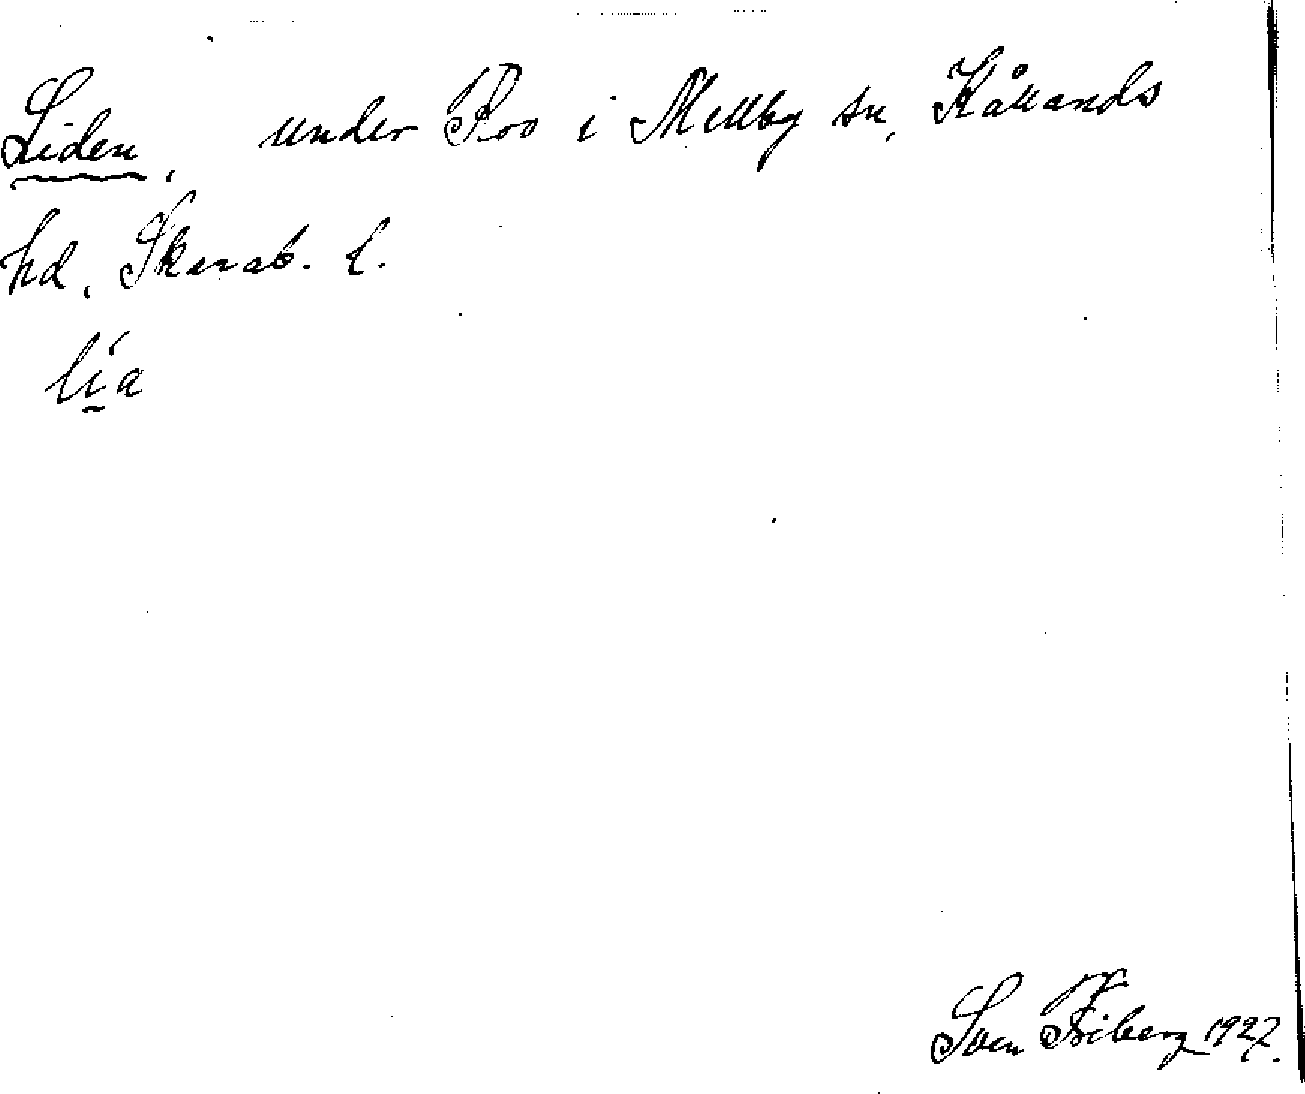 Liden, under Roo i Mellby sn, Kållands
hd, Skarab. l.
lía
Sven Friberg 1927.